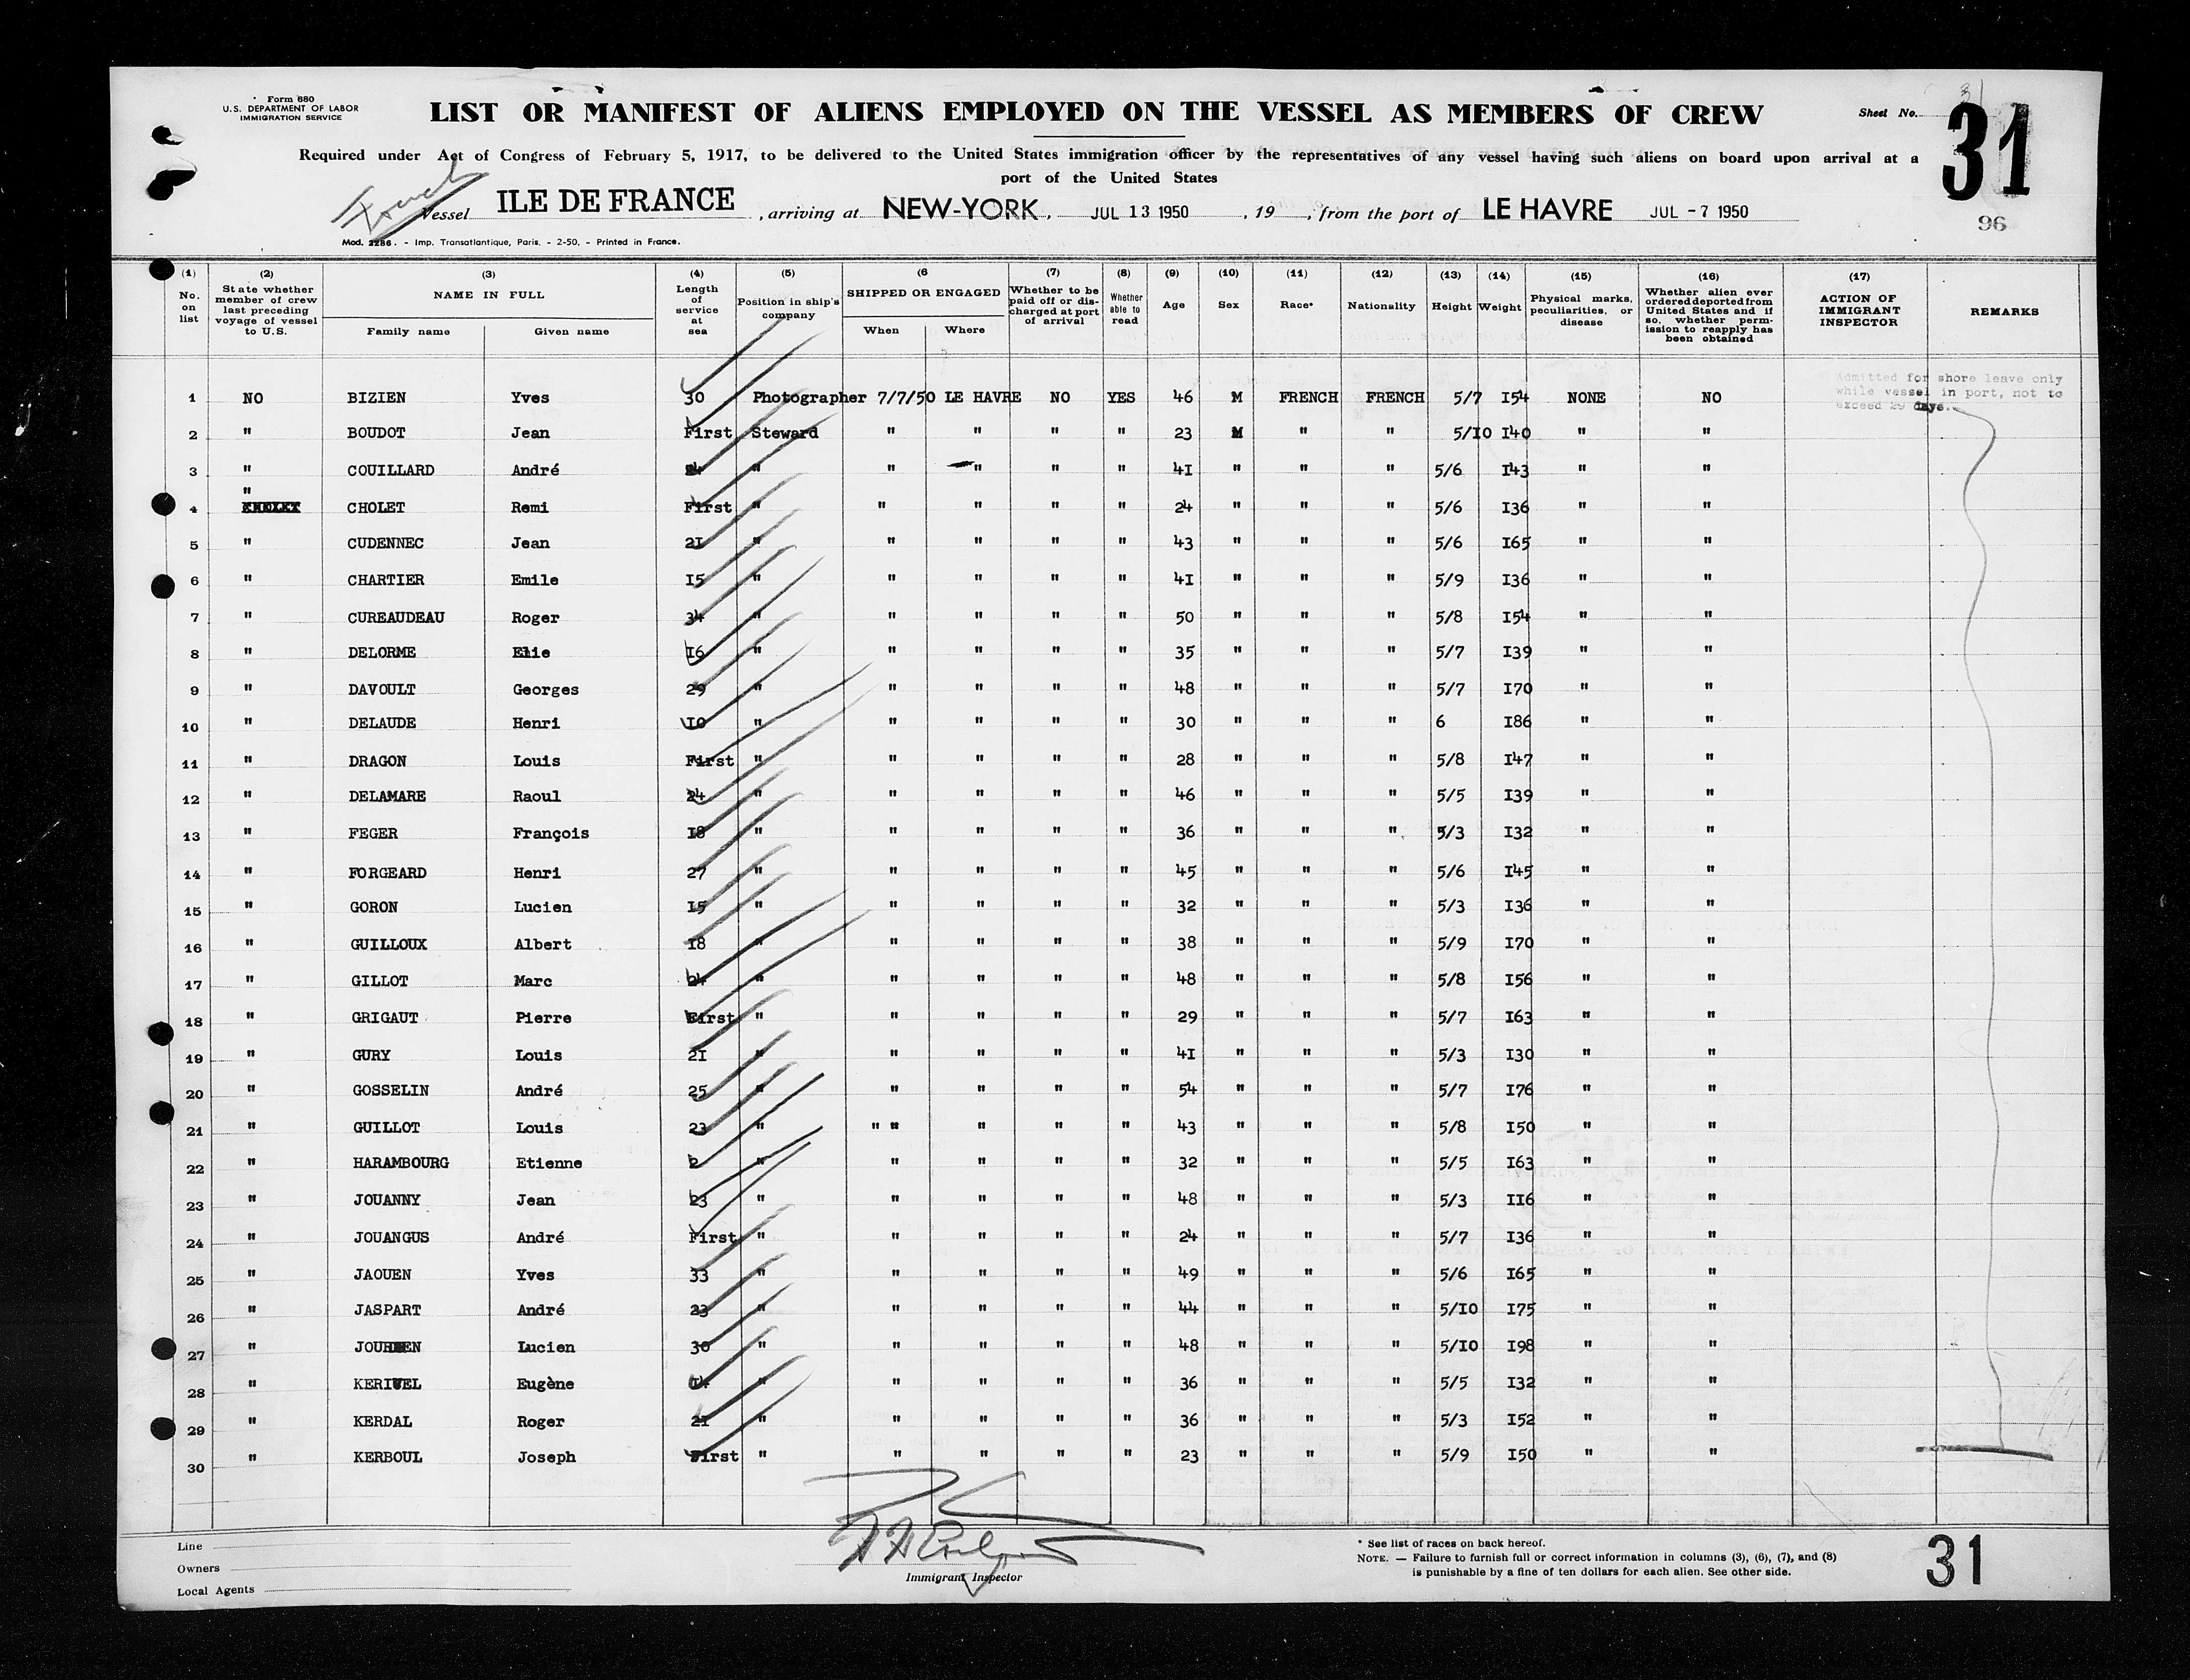 Form 680
U.S. DEPARTMENT OF LABOR
IMMIGRATION SERVICE
LIST OR MANIFEST OF ALIENS EMPLOYED ON THE VESSEL AS MEMBERS OF CREW
Sheet No. 31
31
Required under Act of Congress of February 5, 1917, to be delivered to the United States immigration officer by the representatives of any vessel having such aliens on board upon arrival at a
port of the United States
French
Vessel ILE DE FRANCE, arriving at NEW-YORK, JUL 13 1950, 19 , from the port of LE HAVRE JUL -7 1950
96
Mod. 2286. - Imp. Transatlantique, Paris. - 2-50. - Printed in France.
(1) No. on list
(2) State whether member of crew last preceding voyage of vessel to U.S.
(3) NAME IN FULL
Family name
Given name
(4) Length of service at sea
(5) Position in ship's company
(6 SHIPPED OR ENGAGED
When
Where
(7) Whether to be paid off or discharged at port of arrival
(8) Whether able to read
(9) Age
(10) Sex
(11) Race*
(12) Nationality
(13) Height
(14) Weight
(15) Physical marks, peculiarities, or disease
(16) Whether alien ever ordered deported from United States and if so, whether permission to reapply has been obtained
(17) ACTION OF IMMIGRANT INSPECTOR
REMARKS
Admitted for shore leave only
while vessel in port, not to
exceed 29 days.
1 NO BIZIEN Yves 30 Photographer 7/7/50 LE HAVRE NO YES 46 M FRENCH FRENCH 5/7 I54 NONE NO
2 " BOUDOT Jean First Steward " " " " 23 M " " 5/I0 I40 " "
3 " COUILLARD André 24 " " " " " 4I " " " 5/6 I43 " "
4 " CHOLET Remi First " " " " " 24 " " " 5/6 I36 " "
5 " CUDENNEC Jean 2I " " " " " 43 " " " 5/6 I65 " "
6 " CHARTIER Emile I5 " " " " " 4I " " " 5/9 I36 " "
7 " CUREAUDEAU Roger 34 " " " " " 50 " " " 5/8 I54 " "
8 " DELORME Elie I6 " " " " " 35 " " " 5/7 I39 " "
9 " DAVOULT Georges 29 " " " " " 48 " " " 5/7 I70 " "
10 " DELAUDE Henri I0 " " " " " 30 " " " 6 I86 " "
11 " DRAGON Louis First " " " " " 28 " " " 5/8 I47 " "
12 " DELAMARE Raoul 24 " " " " " 46 " " " 5/5 I39 " "
13 " FEGER François I8 " " " " " 36 " " " 5/3 I32 " "
14 " FORGEARD Henri 27 " " " " " 45 " " " 5/6 I45 " "
15 " GORON Lucien I5 " " " " " 32 " " " 5/3 I36 " "
16 " GUILLOUX Albert I8 " " " " " 38 " " " 5/9 I70 " "
17 " GILLOT Marc 24 " " " " " 48 " " " 5/8 I56 " "
18 " GRIGAUT Pierre First " " " " " 29 " " " 5/7 I63 " "
19 " GURY Louis 2I " " " " " 4I " " " 5/3 I30 " "
20 " GOSSELIN André 25 " " " " " 54 " " " 5/7 I76 " "
21 " GUILLOT Louis 23 " " " " " " 43 " " " 5/8 I50 " "
22 " HARAMBOURG Etienne 2 " " " " " 32 " " " 5/5 I63 " "
23 " JOUANNY Jean 23 " " " " " 48 " " " 5/3 II6 " "
24 " JOUANGUS André First " " " " " 24 " " " 5/7 I36 " "
25 " JAOUEN Yves 33 " " " " " 49 " " " 5/6 I65 " "
26 " JASPART André 23 " " " " " 44 " " " 5/I0 I75 " "
27 " Lucien 30 " " " " " 48 " " " 5/I0 I98 " "
28 " KERIVEL Eugène I4 " " " " " 36 " " " 5/5 I32 " "
29 " KERDAL Roger 2I " " " " " 36 " " " 5/3 I52 " "
30 " KERBOUL Joseph First " " " " " 23 " " " 5/9 I50 " "
Line
Owners
Local Agents
Immigrant Inspector
* See list of races on back hereof.
NOTE. — Failure to furnish full or correct information in columns (3), (6), (7), and (8)
is punishable by a fine of ten dollars for each alien. See other side.
31